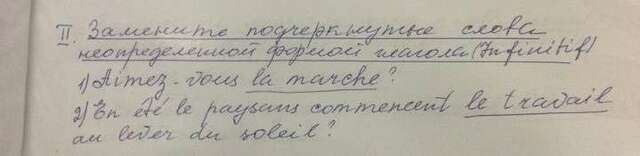 II. Замените подчеркнутые слова
неопределенной формой глагола (Infinitif)
1) Aimez-vous la marche?
2) En été le paysans commencent le travail
au lever du soleil?